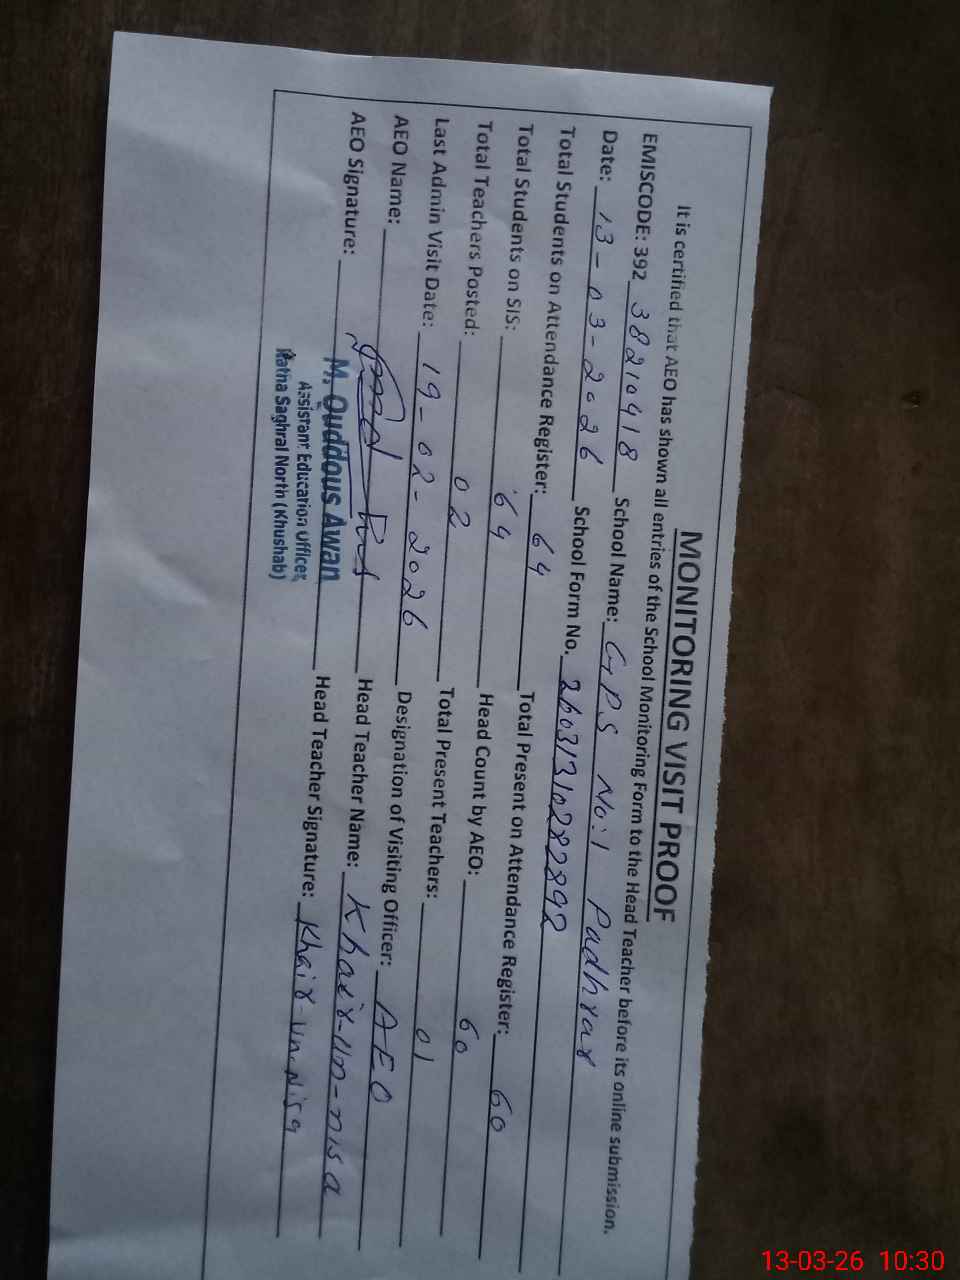 MONITORING VISIT PROOF
It is certified that AEO has shown all entries of the School Monitoring Form to the Head Teacher before its online submission.
EMISCODE: 392 38210418 School Name: GPS No:1 Padhrar
Date: 13-03-2026 School Form No. 26031310282892
Total Students on Attendance Register: 64 Total Present on Attendance Register: 60
Total Students on SIS: 64 Head Count by AEO: 60
Total Teachers Posted: 02 Total Present Teachers: 01
Last Admin Visit Date: 19-02-2026 Designation of Visiting Officer: AEO
AEO Name: Head Teacher Name: Khair-un-nisa
AEO Signature: Head Teacher Signature: Khair-un-Nisa
M. Quddous Awan
Assistant Education Officer
Katha Saghral North (Khushab)
13-03-26 10:30